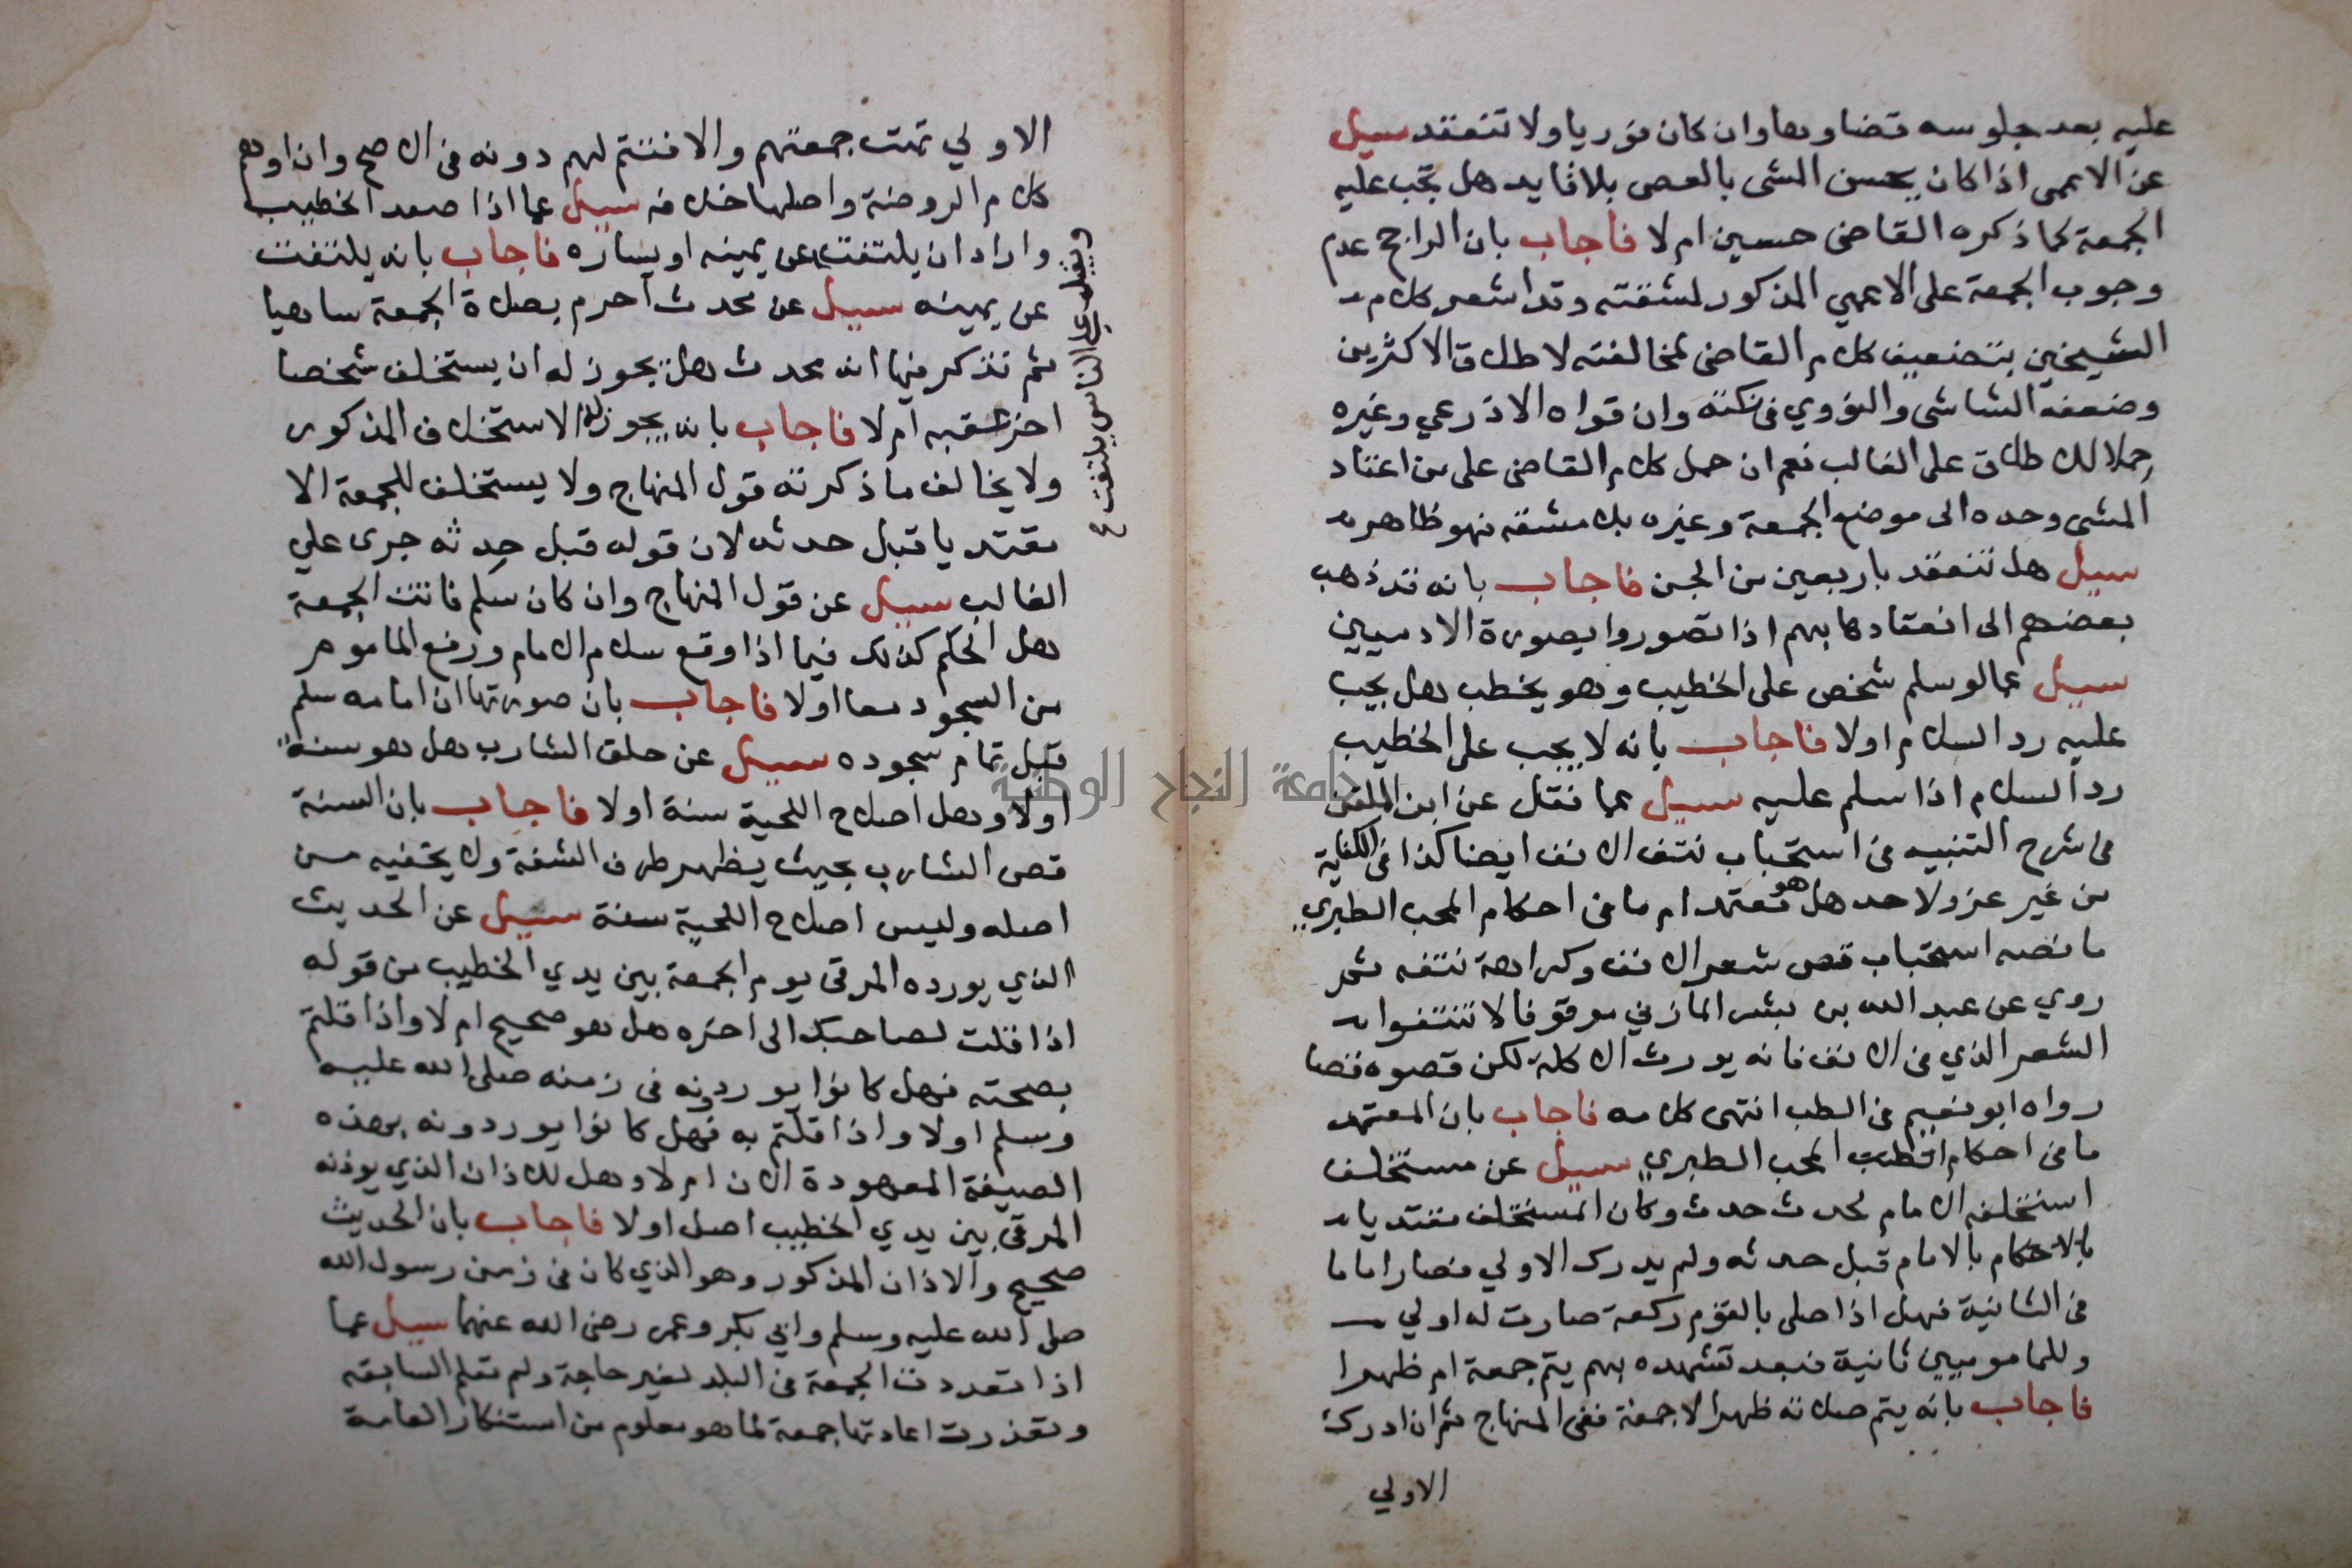 عليه بعد جلوسه قضاوها وان كان فوريا ولا تنعقد سيل
عن الاعمى اذا كان يحسن المشى بالعصى بلا قايد هل تجب عليه
الجمعة كما ذكره القاضى حسين ام لا فاجاب بان الراجح عدم
وجوب الجمعة على الاعمي المذكور لمشقته وقد اشعر كلام
الشيخين بتضعيف كلام القاضى لمخالفته لاطلاق الاكثرين
وضعفه الشاشى والنووي فى نكته وان قواه الاذرعي وغيره
حملا للاطلاق على الغالب نعم ان حمل كلام القاضى على من اعتاد
المشى وحده الى موضع الجمعة وغيره بلا مشقه فهو ظاهر
سيل هل تنعقد باربعين من الجن فاجاب بانه قد ذهب
بعضهم الى انعقادها بهم اذا تصوروا بصورة الادميين
سيل عما لو سلم شخص على الخطيب وهو يخطب هل يجب
عليه رد السلام اولا فاجاب بانه لا يجب على الخطيب
رد السلام اذا سلم عليه سيل عما نقل عن ابن الملقن
فى شرح التنبيه فى استحباب نتف الانف ايضا كذا فى الكفاية
من غير عزو لاحد هل هو معتمد ام ما فى احكام المحب الطبري
ما نصه استحباب قص شعر الانف وكراهة نتفه ثم
روي عن عبد الله بن بشر المازني موقوفا لا تنتفوا
الشعر الذي فى الانف فانه يورث الاكلة لكن قصوه قصا
رواه ابو نعيم فى الطب انتهى كلامه فاجاب بان المعتمد
ما فى احكام المحب الطبري سيل عن مستخلف
استخلفه الامام لحدث حدث وكان المستخلف مقتديا
بالامام قبل حدثه ولم يدرك الاولي فصار اماما
فى الثانية فهل اذا صلى بالقوم ركعة صارت له اولي
وللمامومين ثانية فبعد تشهده بهم يتم جمعة ام ظهرا
فاجاب بانه يتم صلاته ظهرا لا جمعة ففى المنهاج ثم ان ادرك
الاولي
الاولي تمت جمعتهم والا فتتم لهم دونه فى الاصح وان اوهم
كلام الروضة واصلها خلافه سيل عما اذا صعد الخطيب
واراد ان يلتفت عن يمينه او يساره فاجاب بانه يلتفت
عن يمينه سيل عن محدث احرم بصلاة الجمعة ساهيا
ثم تذكر فيها انه محدث هل يجوز له ان يستخلف شخصا
اخر عقبه ام لا فاجاب بانه يجوز له الاستخلاف المذكور
ولا يخالف ما ذكرته قول المنهاج ولا يستخلف للجمعة الا
مقتديا قبل حدثه لان قوله قبل حدثه جرى علي
الغالب سيل عن قول المنهاج وان كان سلم فاتت الجمعة
هل الحكم كذلك فيما اذا وقع سلام الامام ورفع الماموم
من السجود معا اولا فاجاب بان صورتها ان امامه سلم
قبل تمام سجوده سيل عن حلق الشارب هل هو سنة
اولا وهل اصلاح اللحية سنة اولا فاجاب بان السنة
قص الشارب بحيث يظهر طرف الشفة ولا يحفيه من
اصله وليس اصلاح اللحية سنة سيل عن الحديث
الذي يورده المرقى يوم الجمعة بين يدي الخطيب من قوله
اذا قلت لصاحبك الى اخره هل هو صحيح ام لا واذا قلتم
بصحته فهل كانوا يوردونه فى زمنه صلى الله عليه
وسلم اولا واذا قلتم به فهل كانوا يوردونه بهذه
الصيغة المعهودة الان ام لا وهل للاذان الذي يوذنه
المرقى بين يدي الخطيب اصل اولا فاجاب بان الحديث
صحيح والاذان المذكور وهو الذي كان فى زمن رسول الله
صلى الله عليه وسلم وابي بكر وعمر رضى الله عنهما سيل عما
اذا تعددت الجمعة فى البلد لغير حاجة ولم تعلم السابقه
وتعذرت اعادتها جمعة لما هو معلوم من استنكار العامة
ويقبل على الناس يلتفت ع
جامعة النجاح الوطنية